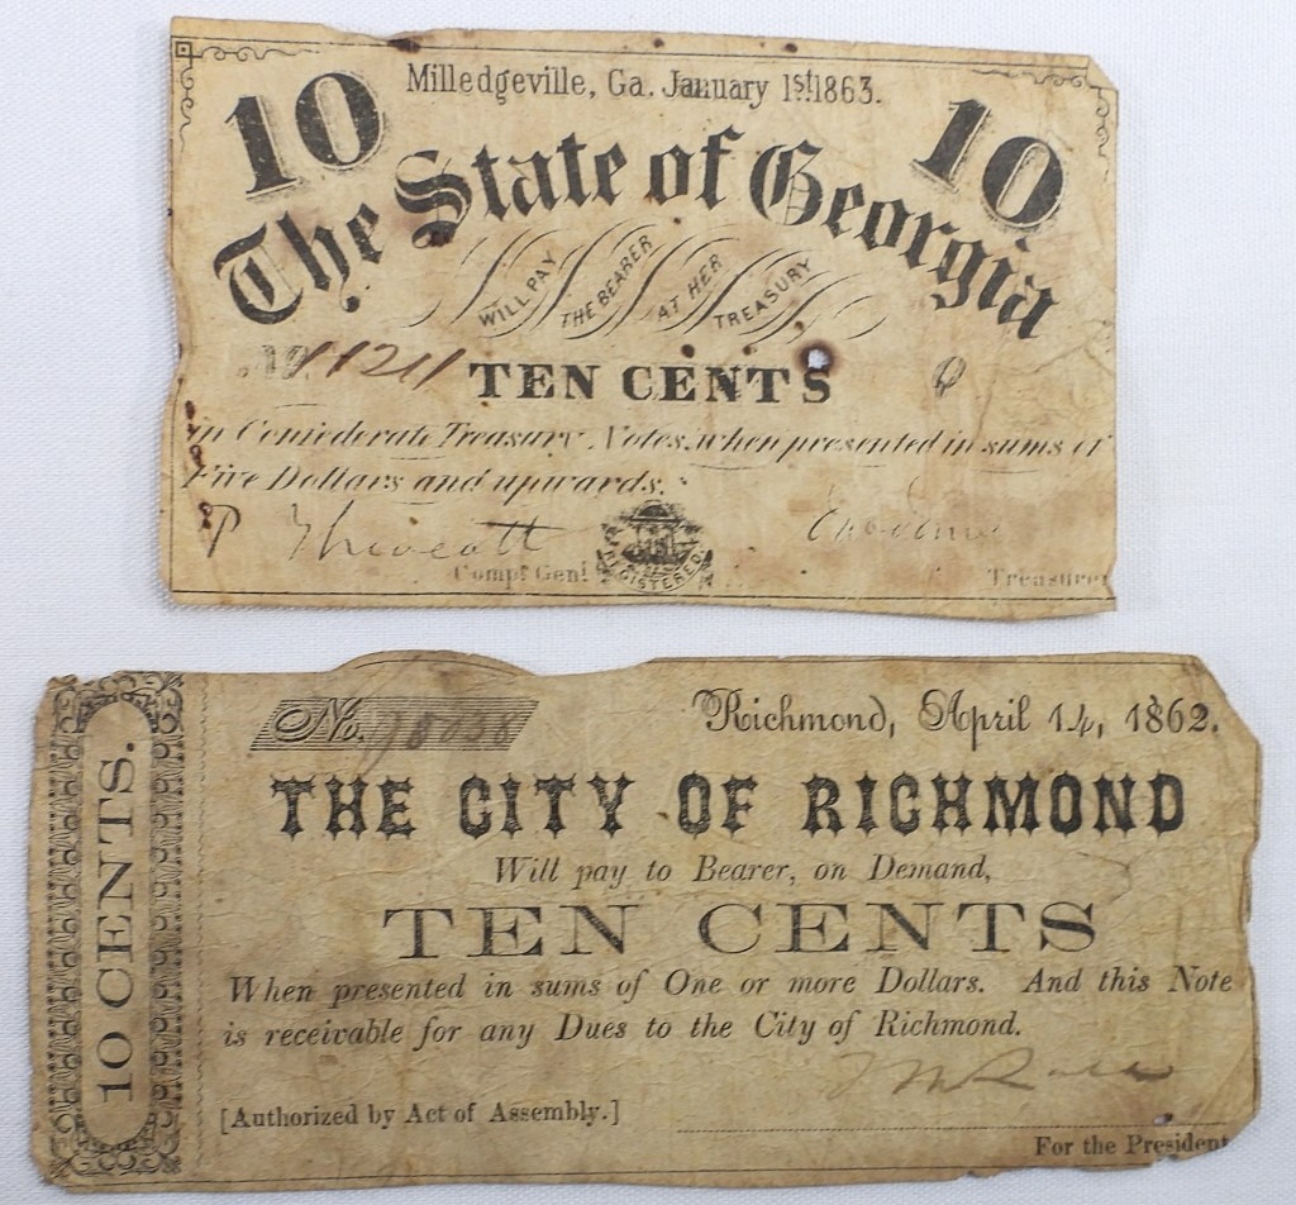 Milledgeville, Ga. January 1st 1863.
10 10
The State of Georgia
WILL PAY THE BEARER AT HER TREASURY
No 11211 TEN CENTS
in Confederate Treasury Notes, when presented in sums of
Five Dollars and upwards.
P Thweatt
Compt Genl REGISTERED. Treasurer
10 CENTS.
No. Richmond, April 14, 1862.
THE CITY OF RICHMOND
Will pay to Bearer, on Demand,
TEN CENTS
When presented in sums of One or more Dollars. And this Note
is receivable for any Dues to the City of Richmond.
[Authorized by Act of Assembly.]
For the President